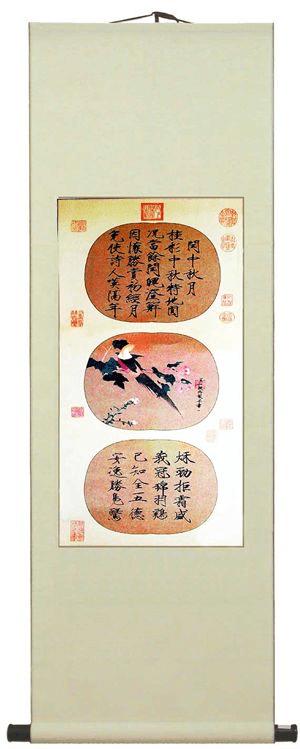 閏中秋月
桂彩中秋特地圓
況當餘閏魄澄鮮
因懷勝賞初經月
免使詩人嘆隔年
秋勁拒霜盛
峩冠錦羽鷄
已知全五德
安逸勝鳧鷖